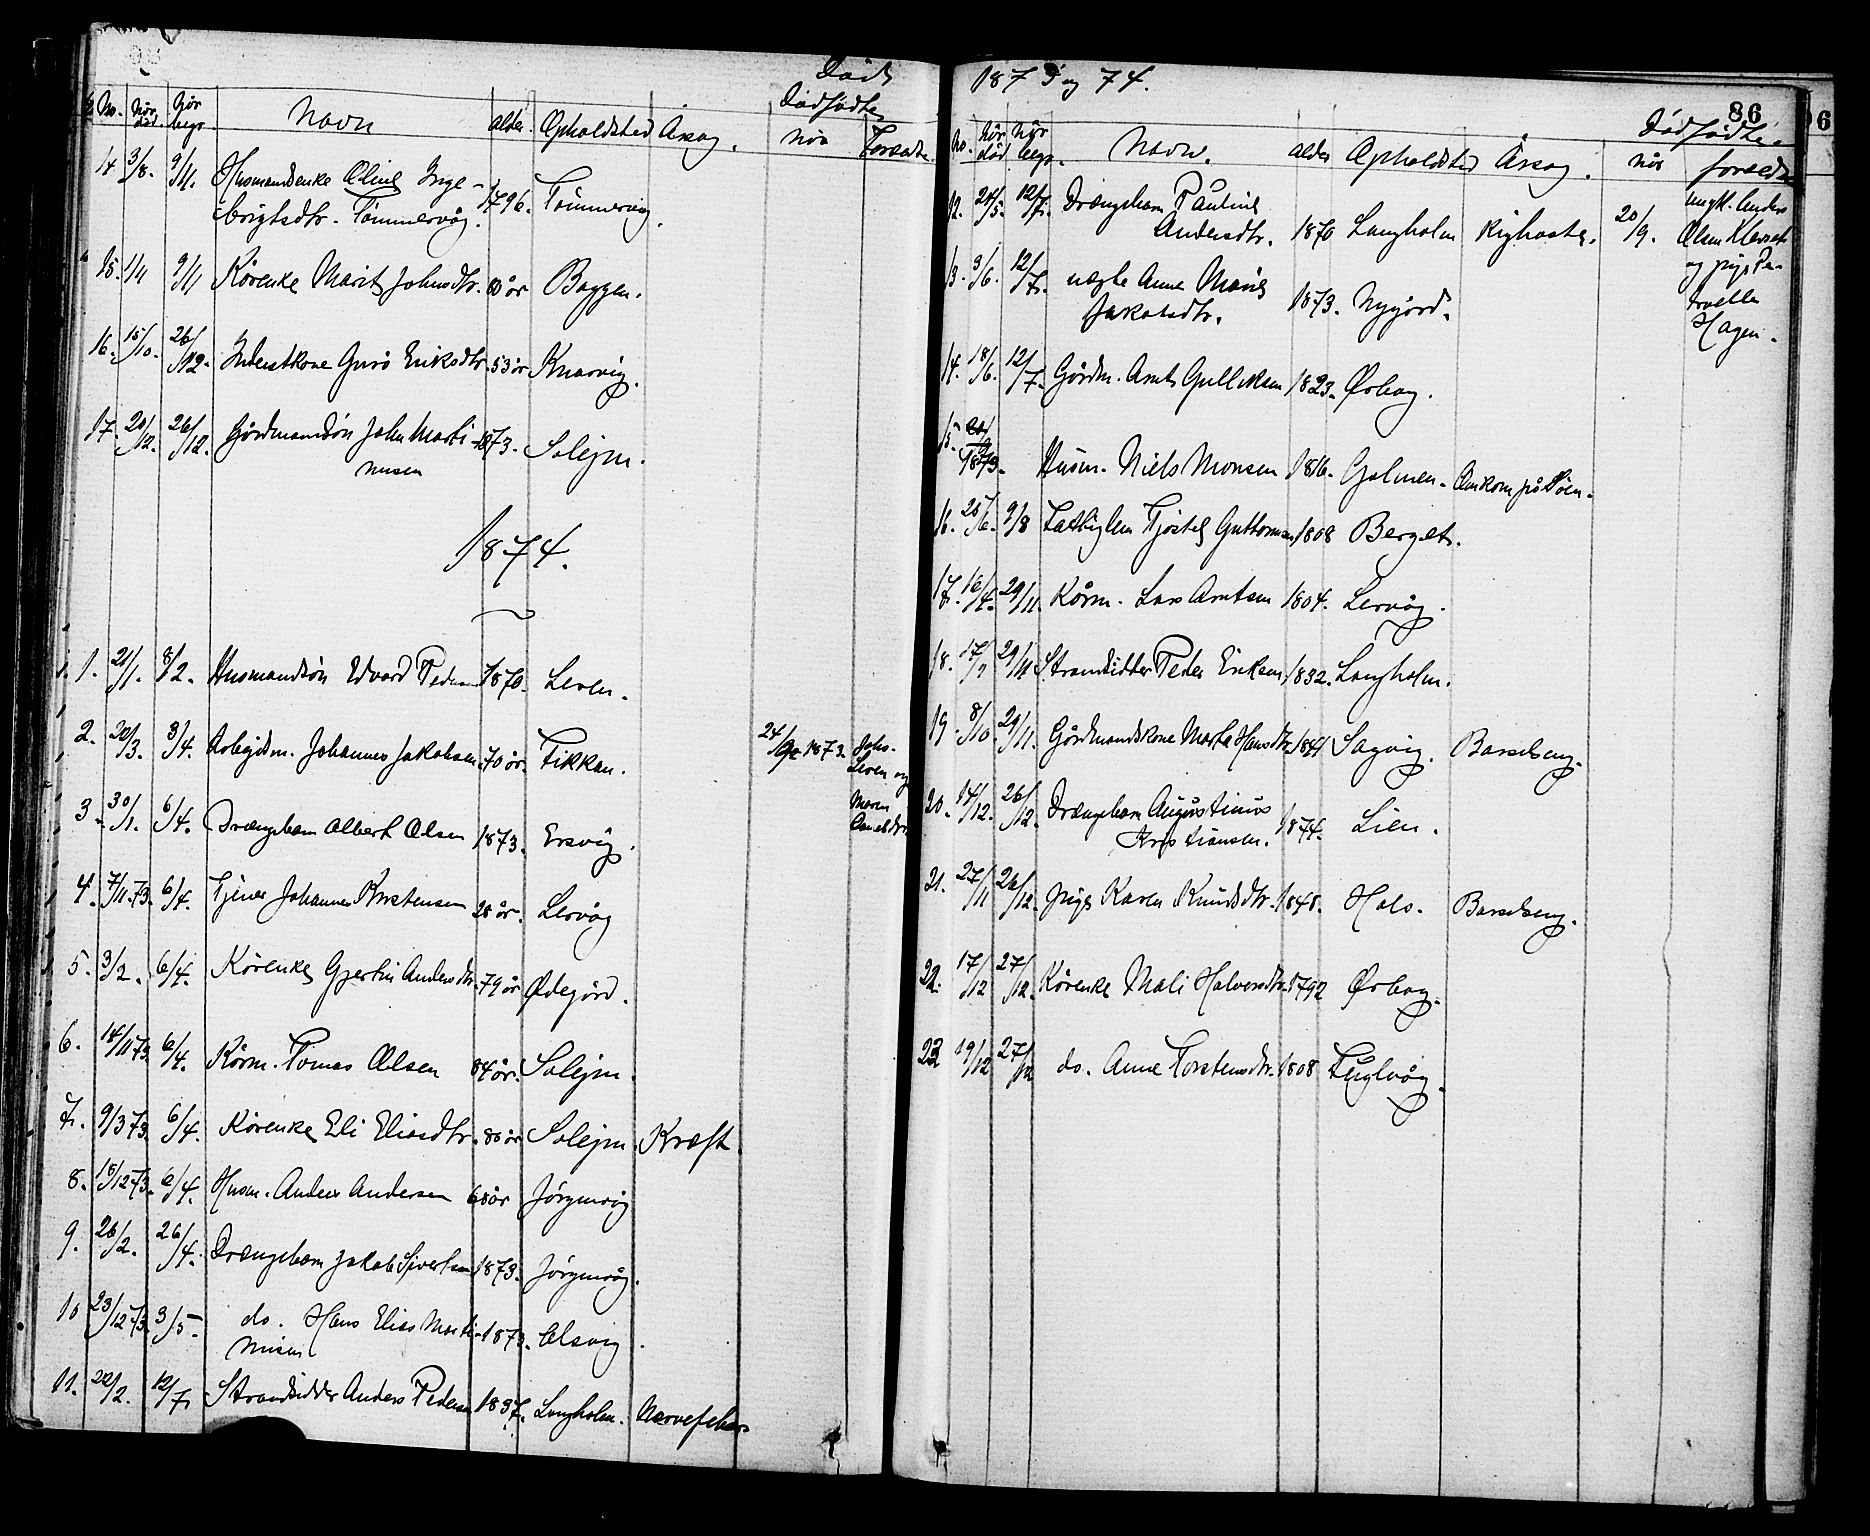 Død
Dødfødte
No. Når død. Når begr. Navn alder. Opholdsted Årsag. når Forældre
14 3/8. 9/11. Husmandsenke Oline Inge-
brigtsdtr. Tømmervåg. 1796. Tømmervåg.
15. 1/11 9/11 Kårenke Marit Johnsdtr. 80 år Baggen.
16. 15/10. 26/12. Inderstkone Guro Eriksdtr. 53 år Knarvig.
17. 20/12. 26/12. Gårdmandsøn John Marti- 1873. Solejm.
nusen
1874.
1. 21/1. 8/2. Husmandsøn Edvard Peders 1870. Leren.
2. 20/3. 3/4. Arbejdsm. Johannes Jakobsen 70 år. Fikkan. 24/9 1873. Johs.
Leren og
Maren
3 30/1. 6/4. Drængebarn Albert Olsen 1873. Ersvig.
4. 7/11.73. 6/4. Tjener Johannes Kristensen 28 år. Lervåg
5. 3/2. 6/4. Kårenke Gjertru Andersdtr. 79 år Ødegård.
6. 14/11 73. 6/4. Kårm. Tomas Olsen 84 år. Solejm.
7. 9/3 73. 6/4. Kårenke Eli Eliasdtr. 80 år Solejm. Kræft.
8. 18/12 73. 6/4. Husm. Anders Andersen 68 år Jörgenvåg
9. 26/2. 26/4. Drængebarn Jakob Sivertsen 1873. Jörgenvåg.
10 23/12 73. 3/5. do. Hans Elias Marti- 1873. Olsvig.
nusen
11. 22/2. 12/7. Strandsidder Anders Pedersen 1837. Langholm. Nervefeber.
1873 og 74.
86
Dødfødte.
No. Når død Når begr. Navn. alder Opholdsted Årsag. når forældre
12. 24/5. 12/7. Drængebarn Pauline
Andersdtr. 1870 Langholm Kighoste. 20/9. ungk. Anders
Olsen Klevset
og pige Pe-
tronella
Hagen.
13. 3/6. 12/7. uægte Anne Marie
Jakobsdtr. 1873. Nygård.
14. 18/6. 12/7. Gårdm. Arnt Gulliksen 1823. Ørbog.
15. 1873. Husm. Niels Monsen 1816. Gjelmen. Omkom på Søen.
16. 25/6. 9/8 Fattiglem Fjøstel Guttormsen 1808 Berget.
17. 16/4. 29/11. Kårm. Lars Arntsen 1804. Lervåg.
18. 17/7 29/11 Strandsidder Peder Eriksen 1832. Langholm.
19. 8/10. 29/11. Gårdmandskone Marta Hansdtr. 1844 Sagvig. Barselseng.
20. 14/12. 26/12. Drængebarn Augustinus
Kristiansen. 1874. Lien.
21. 27/11 26/12. Pige Karen Knudsdtr. 1848. Hals. Barselseng.
22. 17/12 27/12. Kårenke Mali Halvorsdtr. 1792 Ørbog.
23 19/12 27/12 do. Anne Torstensdtr. 1808 Fuglvåg.